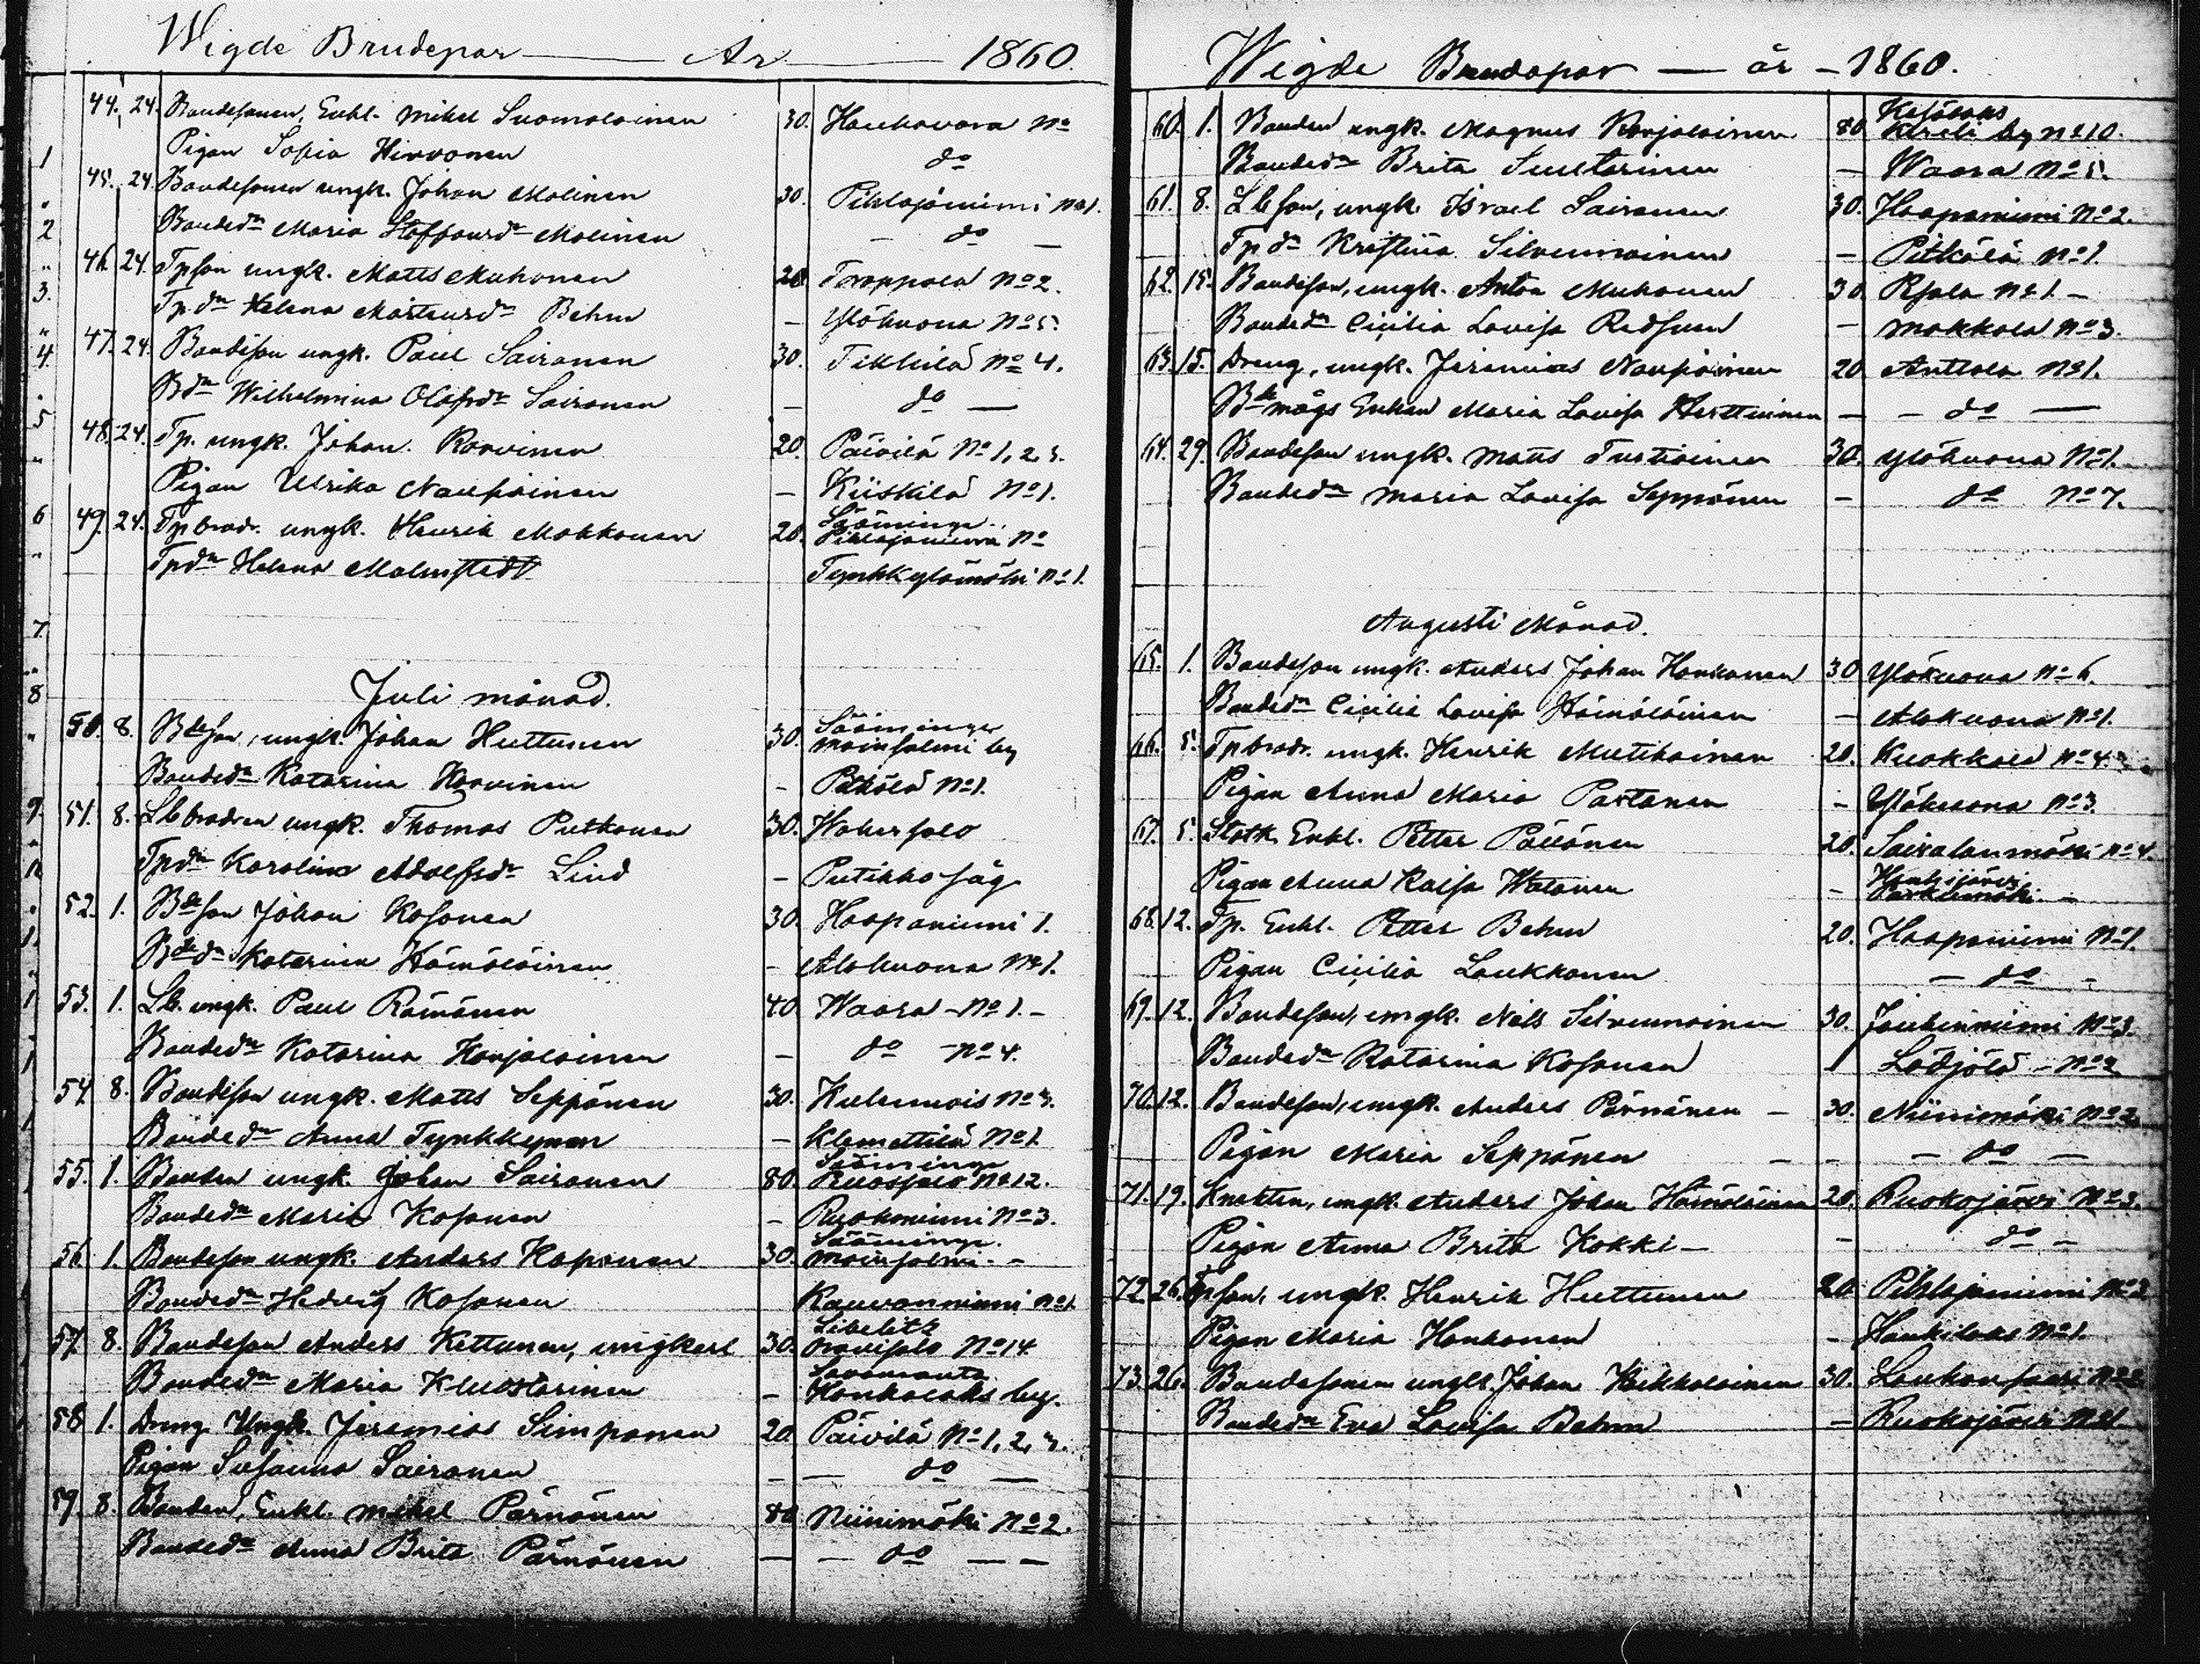 Wigde Brudepar — År — 1860.
44. 24. Bondesonen, Enkl. Mikel Suomalainen 30. Haukavara No
Pigan Sofia Hirvonen do
45. 24. Bondesonen ungk. Johan Malinen 30. Pihlajaniemi No 1.
Bonded:n Maria Staffansd:r Malinen — do —
46. 24. Tpson ungk. Matts Muhonen 20 Toroppala No 2.
Tpd:n Helena Mårtensd:r Behm — Ylökuona No 5.
47. 24. Bondeson ungk. Paul Sairanen 30. Tikkila No 4.
Bd:n Wilhelmina Olofsd:r Sairanen — do —
48. 24. Tp. ungk. Johan Korvinen 20. Päivilä No 1, 2, 3.
Pigan Ulrika Naupainen — Kiiskilä No 1.
49. 24. Tpbrodr. ungk. Henrik Makkonen 20. Sääminge Pihlajaniemi No
Tpd:n Helena Malmstedt Tynkkylämäki No 1.
Juli månad.
50. 8. Bdeson, ungk. Johan Huttunen 30. Sääminge Moinsalmi by
Bonded:n Katarina Korvinen — Pitkälä No 1.
51. 8. Lbbrodren ungk. Thomas Putkonen 30. Haukersalo
Tpd:n Karolina Adolfsd:r Lind — Putikko såg
52. 1. Bdeson Johan Kosonen 30. Haapaniemi 1.
Bded:n Katarina Hämäläinen — Alakuona No 1.
53. 1. Lb. ungk. Paul Rämänen 40. Waara — No 1. —
Bonded:n Katarina Karjalainen — do — No 4.
54. 8. Bondeson ungk. Matts Seppänen 30. Kulennois No 3.
Bonded:n Anna Tynkkynen — Klemettilä No 1.
55. 1. Bonden ungk. Johan Sairanen 80. Sääminge Ruossalo No 12.
Bonded:n Maria Kosonen — Ruokoniemi No 3.
56. 1. Bondeson ungk. Anders Kaponen 30. Sääminge Moinsalmi. —
Bonded:n Hedvig Kosonen Kauvonniemi No 1.
57. 8. Bondeson Anders Kettunen, ungkarl 30. Libelitz Oravisalo No 14
Bonded:n Maria Kluustarinen — Savonranta Honkalaks by.
58 1. Dreng Ungk. Jeremias Simpanen 20. Päivilä No 1, 2, 3.
Pigan Susanna Sairanen — — do —
59. 8. Bonden, Enkl. Mikel Pärnänen 80 Niinimäki No 2.
Bonded:n Anna Brita Pärnänen — — do — —
Wigde Brudepar — år — 1860.
60. 1. Bonden ungk. Magnus Karjalainen 80 Kesälaks by No 10.
Bonded:n Brita Suutarinen — Waara No 5.
61. 8. Lbson, ungk. Israel Sairanen 30. Haapaniemi No 2.
Tpd:n Kristiina Silvennoinen — Pitkälä No 1.
62. 15. Bondeson, ungk. Anton Muhonen 30. Rjala No 1. —
Bonded:n Cicilia Lovisa Redsven — Makkola No 3.
63. 15. Dreng, ungk. Jeremias Naupainen 20. Anttola No 1.
Bdemågs Enkan Maria Lovisa Herttuinen — — do —
64. 29. Bondeson ungk. Matts Turtiainen 30. Ylökuona No 1.
Bonded:n Maria Lovisa Seppänen — do No 7.
Augusti Månad.
65. 1. Bondeson ungk. Anders Johan Honkanen 30 Ylökuona No 6.
Bonded:n Cicilia Lovisa Hämäläinen — Alakuona No 1.
66. 5. Tpbrodr. ungk. Henrik Mutikainen 20. Kuokkala No 4.
Pigan Anna Maria Partanen — Ylökuona No 3.
67. 5. Statk. Enkl. Petter Pällänen 20. Sairalanmäki No 4.
Pigan Anna Kaisa Watanen — Heinäjärvi Parkumäki —
68. 12. Tp. Enkl. Petter Behm 20. Haapaniemi No 1.
Pigan Cicilia Laukkanen — do —
69. 12. Bondeson, ungk. Nils Silvennoinen 30. Jouhenniemi No 3.
Bonded:n Katarina Kosonen Lådjälä — No 2
70. 12. Bondeson, ungk. Anders Pärnänen — 30. Niinimäki No 2.
Pigan Maria Seppänen — — do —
71. 19. Knekten, ungk. Anders Johan Hämäläinen 20. Ruokojärvi No 3.
Pigan Anna Brita Kokki — — do —
72. 26. Tpson, ungk. Henrik Huttunen 20. Pihlajaniemi No 3
Pigan Maria Honkanen — Haukilaks No 1.
73. 26. Bondesonen ungk. Johan Kaikkalainen 30. Loukonsaari No 2
Bonded:n Eva Lovisa Behm — Ruokojärvi No 1